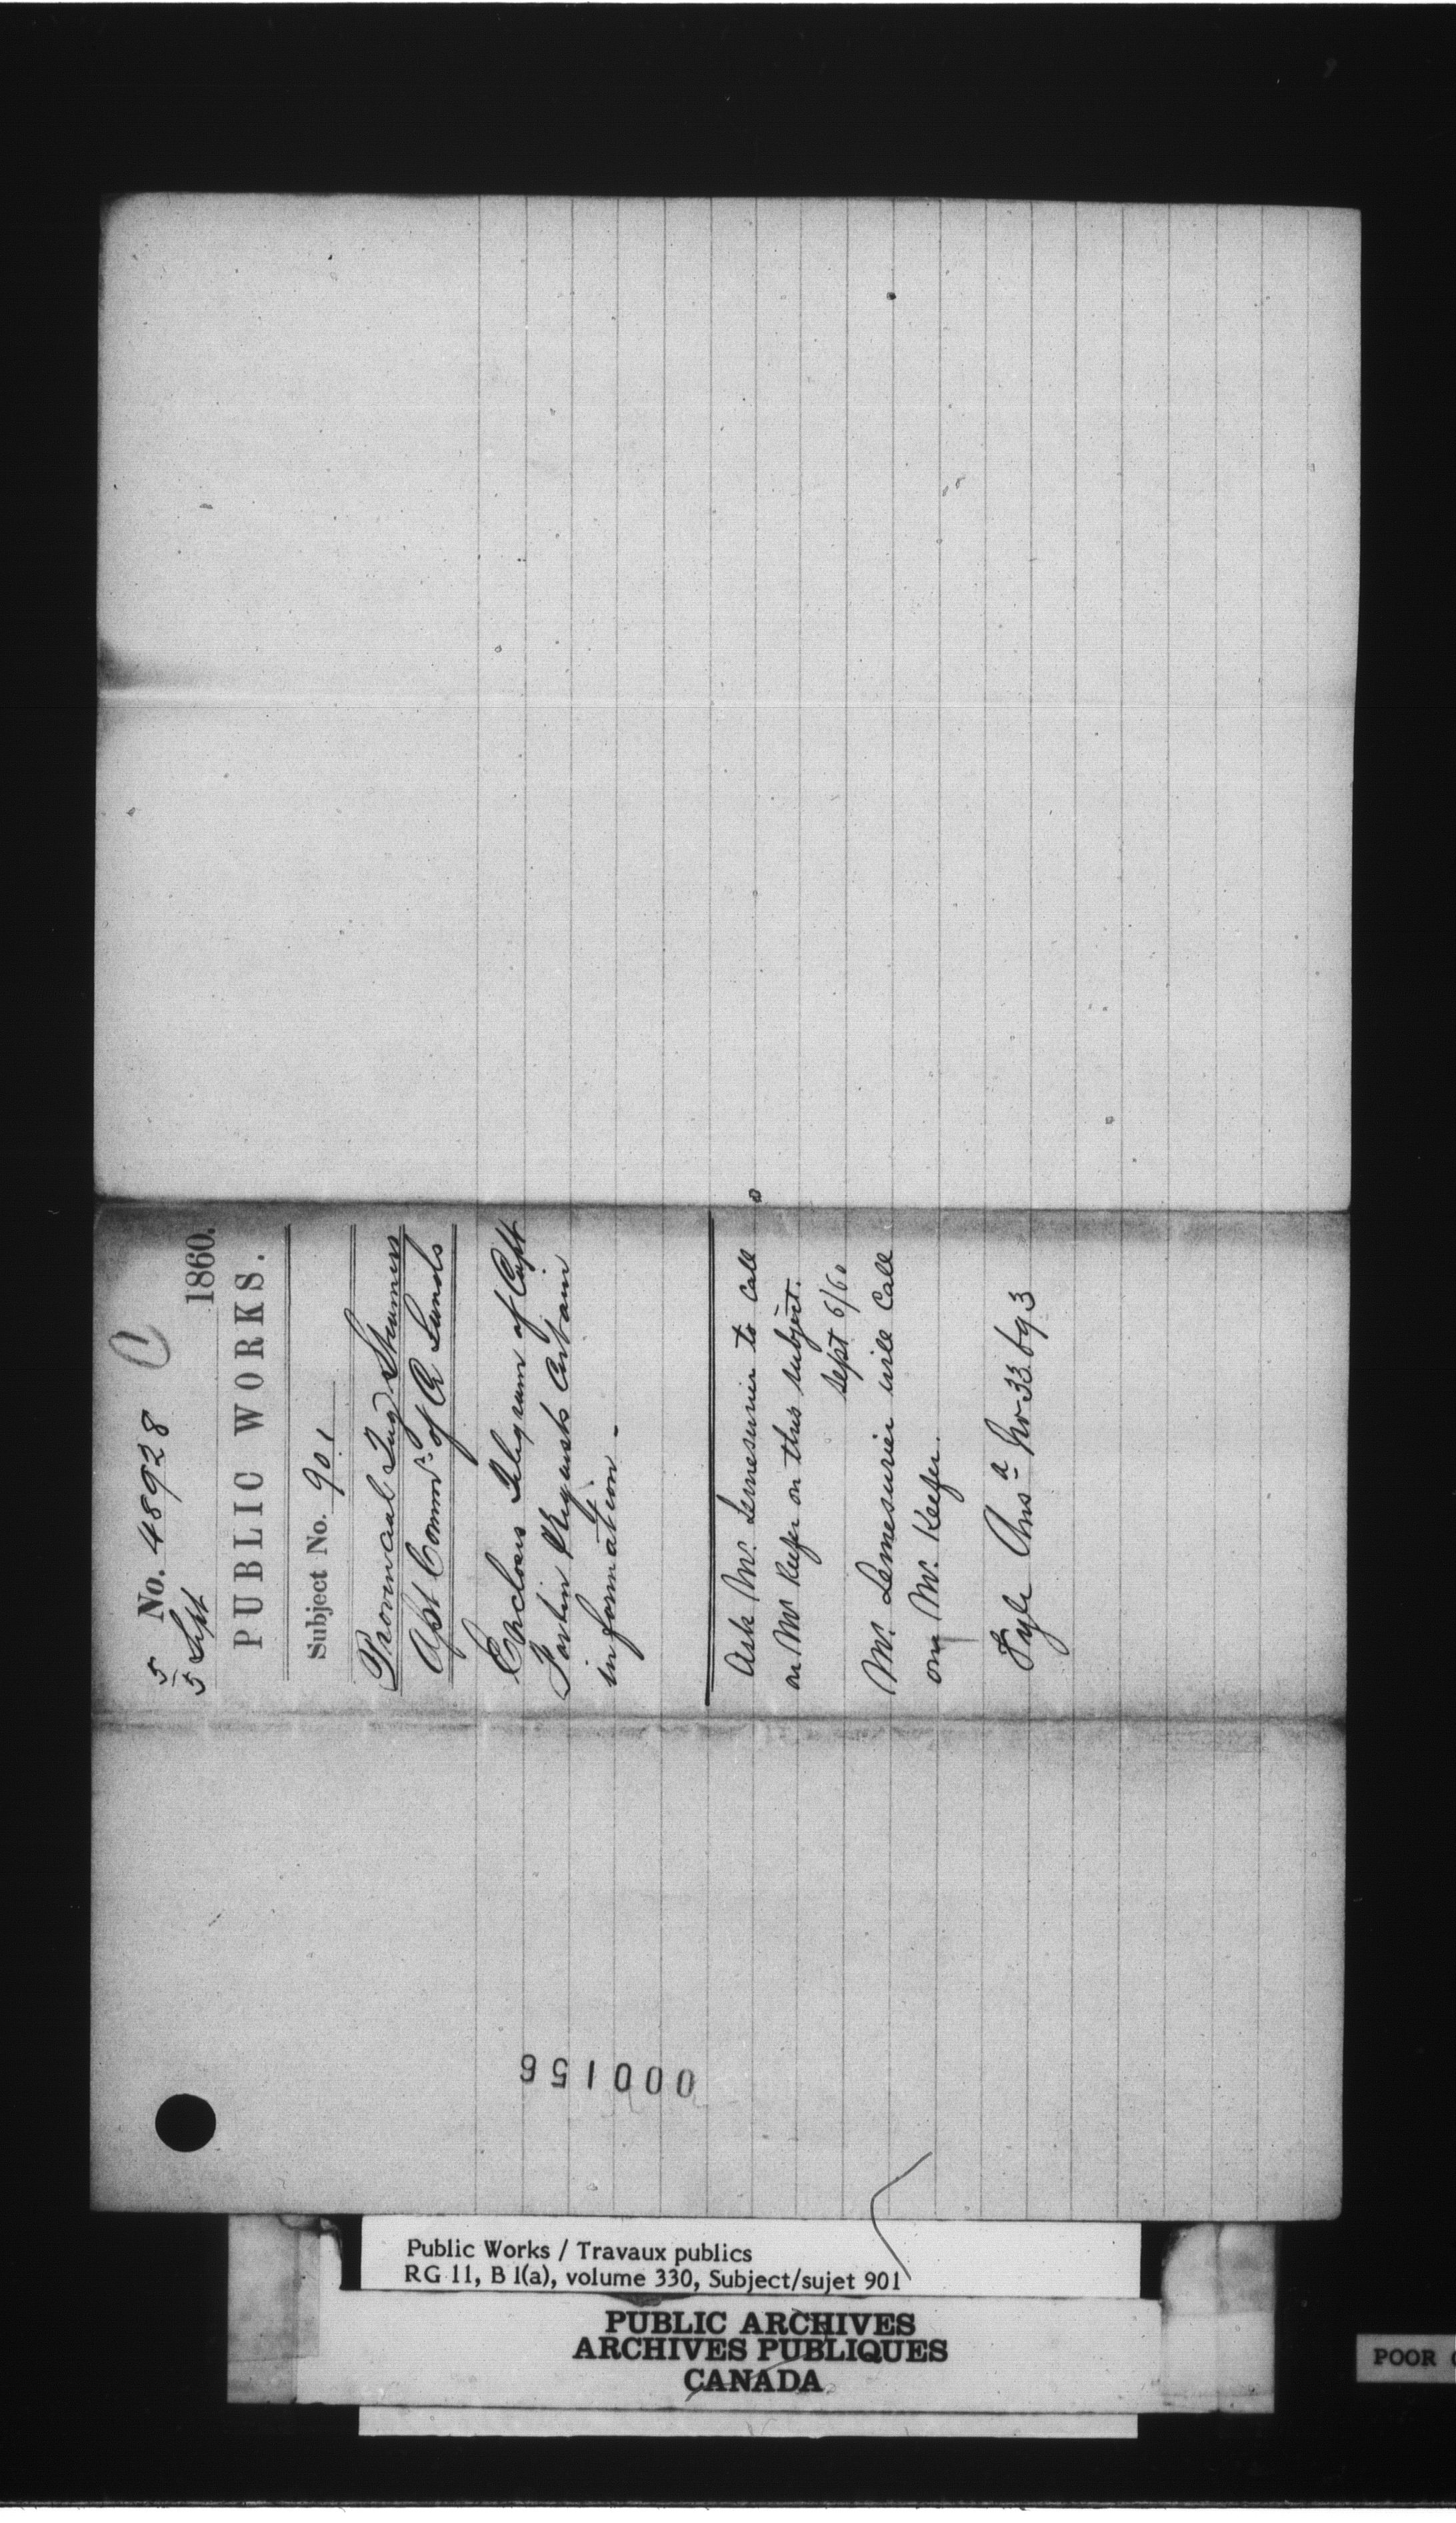 No. 48928
5
5 Sept 1860.
PUBLIC WORKS.
Subject No. 901
Provincial Tug Steamers
Asst Commr. of Cr Lands
Encloses Telegram of Capt
Fortin Requests Certain
information.
Ask Mr. Lemesurier to call
on Mr Keefer on this subject.
Sept 6/60
Mr. Lemesurier will Call
on Mr. Keefer.
Fyle Ansa No 33693
000156
Public Works / Travaux publics
RG 11, B 1(a), volume 330, Subject/sujet 901
PUBLIC ARCHIVES
ARCHIVES PUBLIQUES
CANADA
POOR